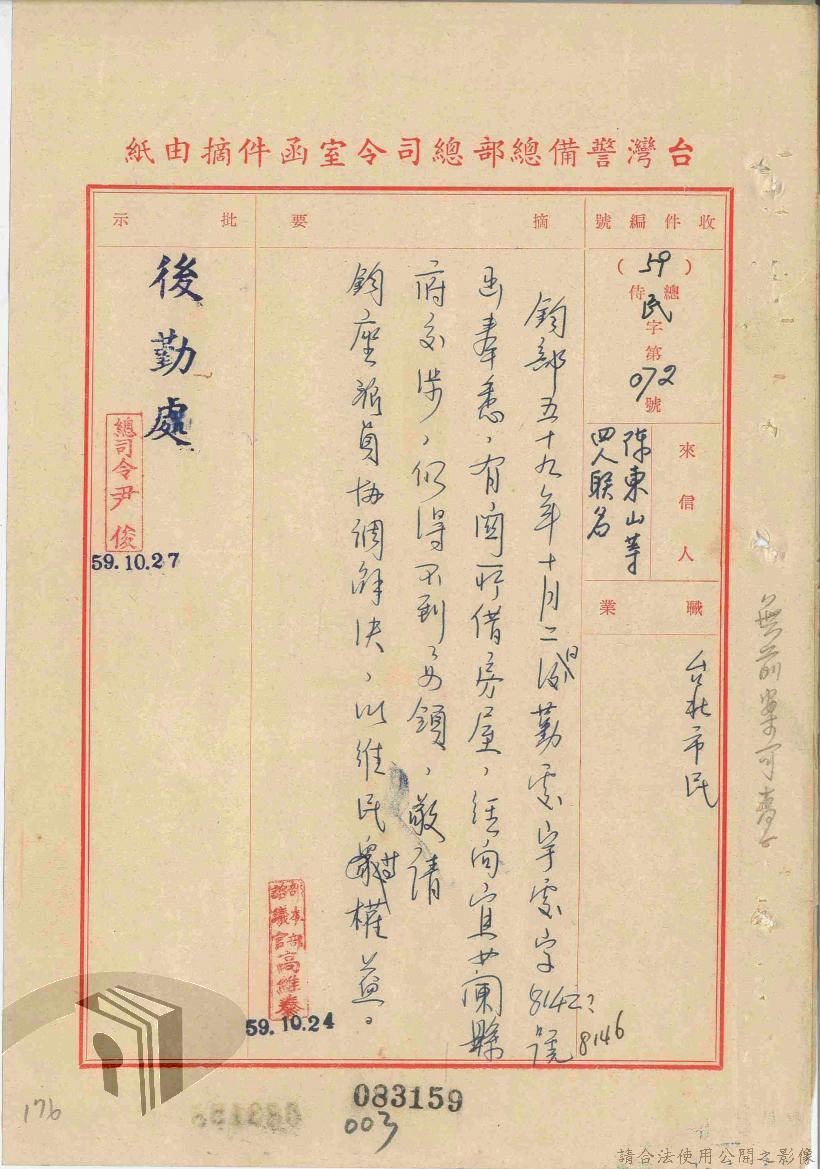 台灣警備總部總司令室函件摘由紙
收件編號
(59)總侍民字第072號
來信人
陳東山等
四人聯名
職業
台北市民
摘要
鈞部五十九年十月二日後勤處字處字8142?號 8146
函奉悉,有關所借房屋,經向宜蘭縣
府交涉,仍得不到要領,敬請
鈞座派員協調解決,以維民眾權益。
部本部諮議官高維泰
59.10.24
批示
後勤處
總司令尹俊
59.10.27
無前案可查
083159
003
176
請合法使用公開之影像